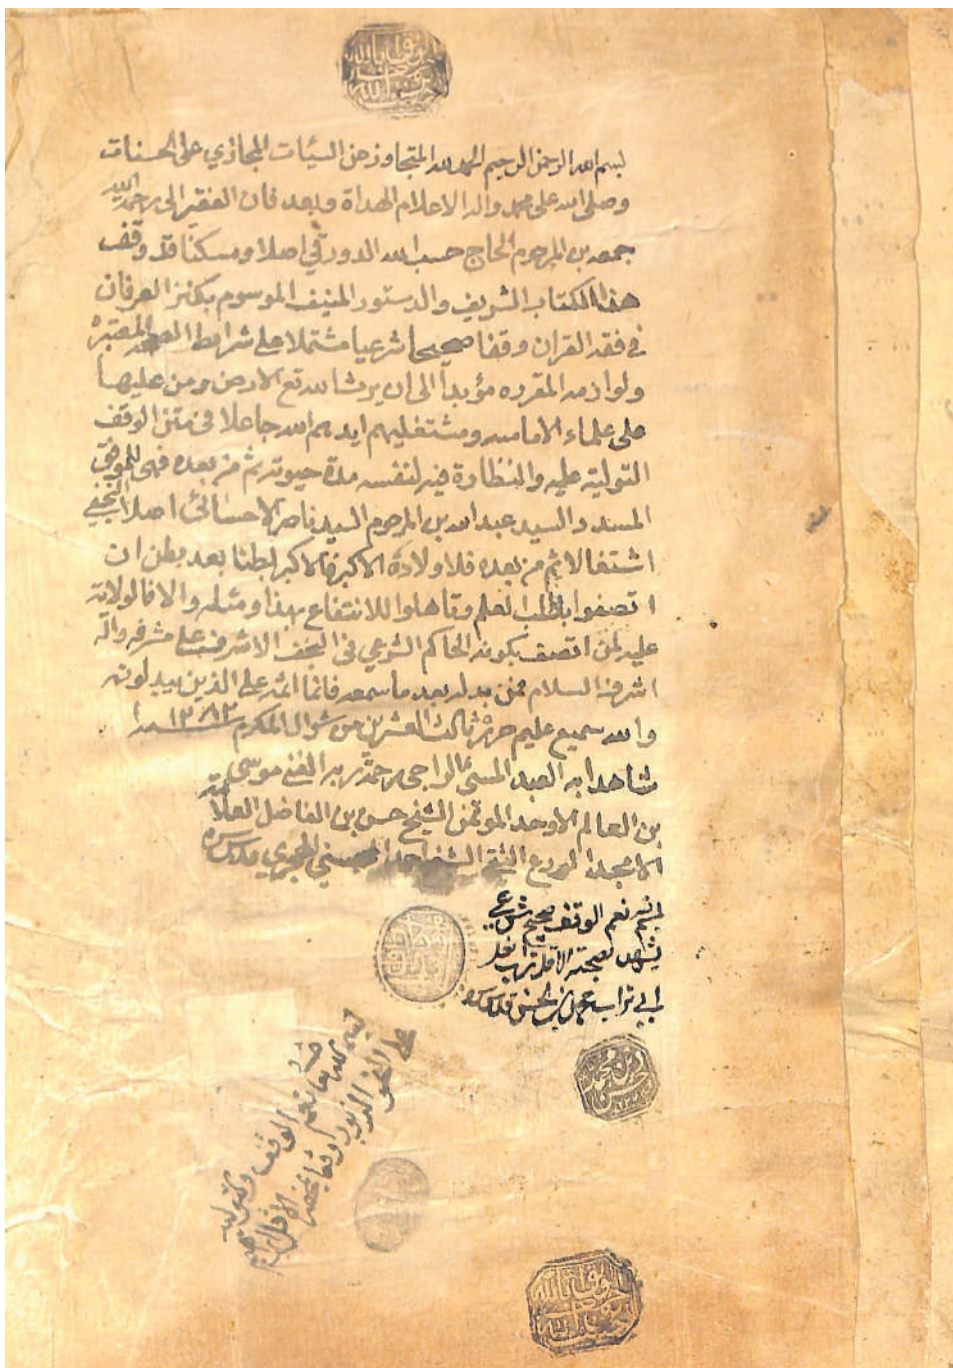 بسم الله الرحمن الرحيم الحمد لله المتجاوز عن السيئات المجازي على الحسنات
وصلى الله على محمد واله الاعلام الهداة وبعد فان الفقير الى رحمة الله
جمعه بن المرحوم الحاج حسب الله الدورقي اصلا ومسكنا قد وقف
هذا الكتاب الشريف والدستور المنيف الموسوم بكنز العرفان
في فقه القران وقفا صحيحا شرعيا مشتملا على شرايط الصحه المعتبره
ولوازمه المقرره مؤبدا الى ان يرث الله تع الارض ومن عليها
على علماء الاماميه ومشتغليهم ايدهم الله جاعلا في متن الوقف
التولية عليه والنظارة فيه لنفسه مدة حيوته ثم من بعده فهي للموفق
المسدد السيد عبد الله بن المرحوم السيد ناصر الاحسائي اصلا النجفي
اشتغالا ثم من بعده فلاولاده الاكبر فالاكبر بطنا بعد بطن ان
اتصفوا بطلب العلم وتاهلوا للانتفاع بهذا ومثله والا فالولاية
عليه لمن اتصف بكونه الحاكم الشرعي في النجف الاشرف على مشرفه واله
اشرف السلام فمن بدله بعد ما سمعه فانما اثمه على الذين يبدلونه
والله سميع عليم حرر ثالث العشرين من شوال المكرم ١٢٨٢
شاهدا به العبد المسئ الراجي رحمة ربه الغني موسى
بن العالم الاوحد المؤتمن الشيخ حسن بن الفاضل العلامة
الامجد الورع التقي الشيخ احمد المحسني الهجري قدس سره
بسمه نعم الوقف صحيح شرعي
يشهد بصحته الاقل تراب اقدام
ابي تراب محمد بن الحسن
نعم الوقف
على النحو المزبور
بن محمد
حسن